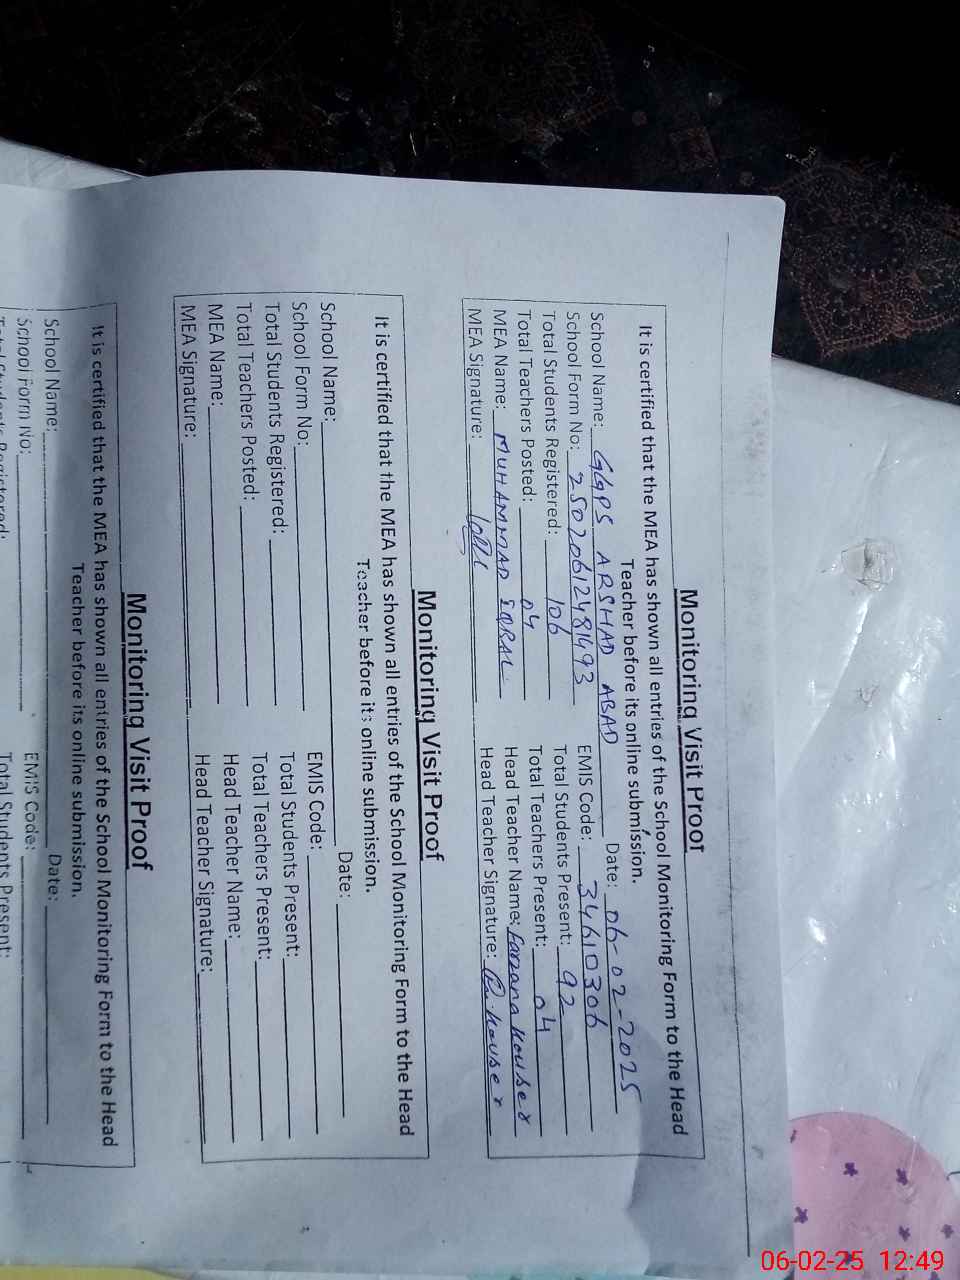 Monitoring Visit Proof
It is certified that the MEA has shown all entries of the School Monitoring Form to the Head
Teacher before its online submission.
School Name: GGPS ARSHAD ABAD Date: 06-02-2025
School Form No: 25020612481493 EMIS Code: 34610306
Total Students Registered: 106 Total Students Present: 92
Total Teachers Posted: 04 Total Teachers Present: 04
MEA Name: MUHAMMAD IQBAL. Head Teacher Name: Farzana Kouser
MEA Signature: Head Teacher Signature: Kouser
Monitoring Visit Proof
It is certified that the MEA has shown all entries of the School Monitoring Form to the Head
Teacher before its online submission.
School Name: Date:
School Form No: EMIS Code:
Total Students Registered: Total Students Present:
Total Teachers Posted: Total Teachers Present:
MEA Name: Head Teacher Name:
MEA Signature: Head Teacher Signature:
Monitoring Visit Proof
It is certified that the MEA has shown all entries of the School Monitoring Form to the Head
Teacher before its online submission.
School Name: Date:
School Form No: EMIS Code:
Total Students Registered: Total Students Present:
06-02-25 12:49